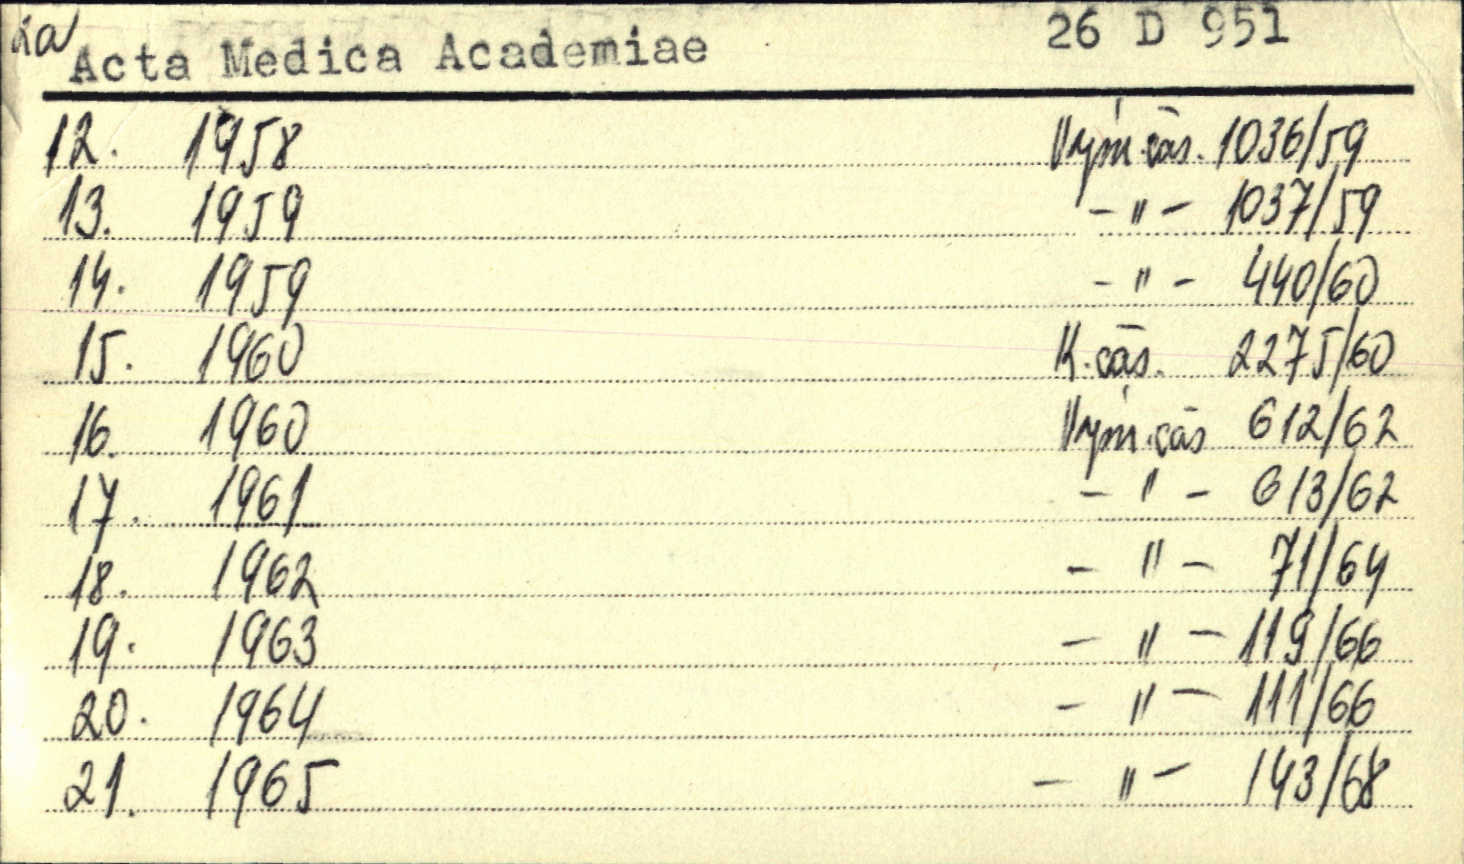 2a Acta Medica Academiae 26 D 951
12. 1958 Vým. čas. 1036/59
13. 1959 - " - 1037/59
14. 1959 - " - 440/60
15. 1960 K. čas. 2275/60
16. 1960 Vým. čas 612/62
17. 1961 - " - 613/62
18. 1962 - " - 71/64
19. 1963 - " - 119/66
20. 1964 - " - 111/66
21. 1965 - " - 143/68